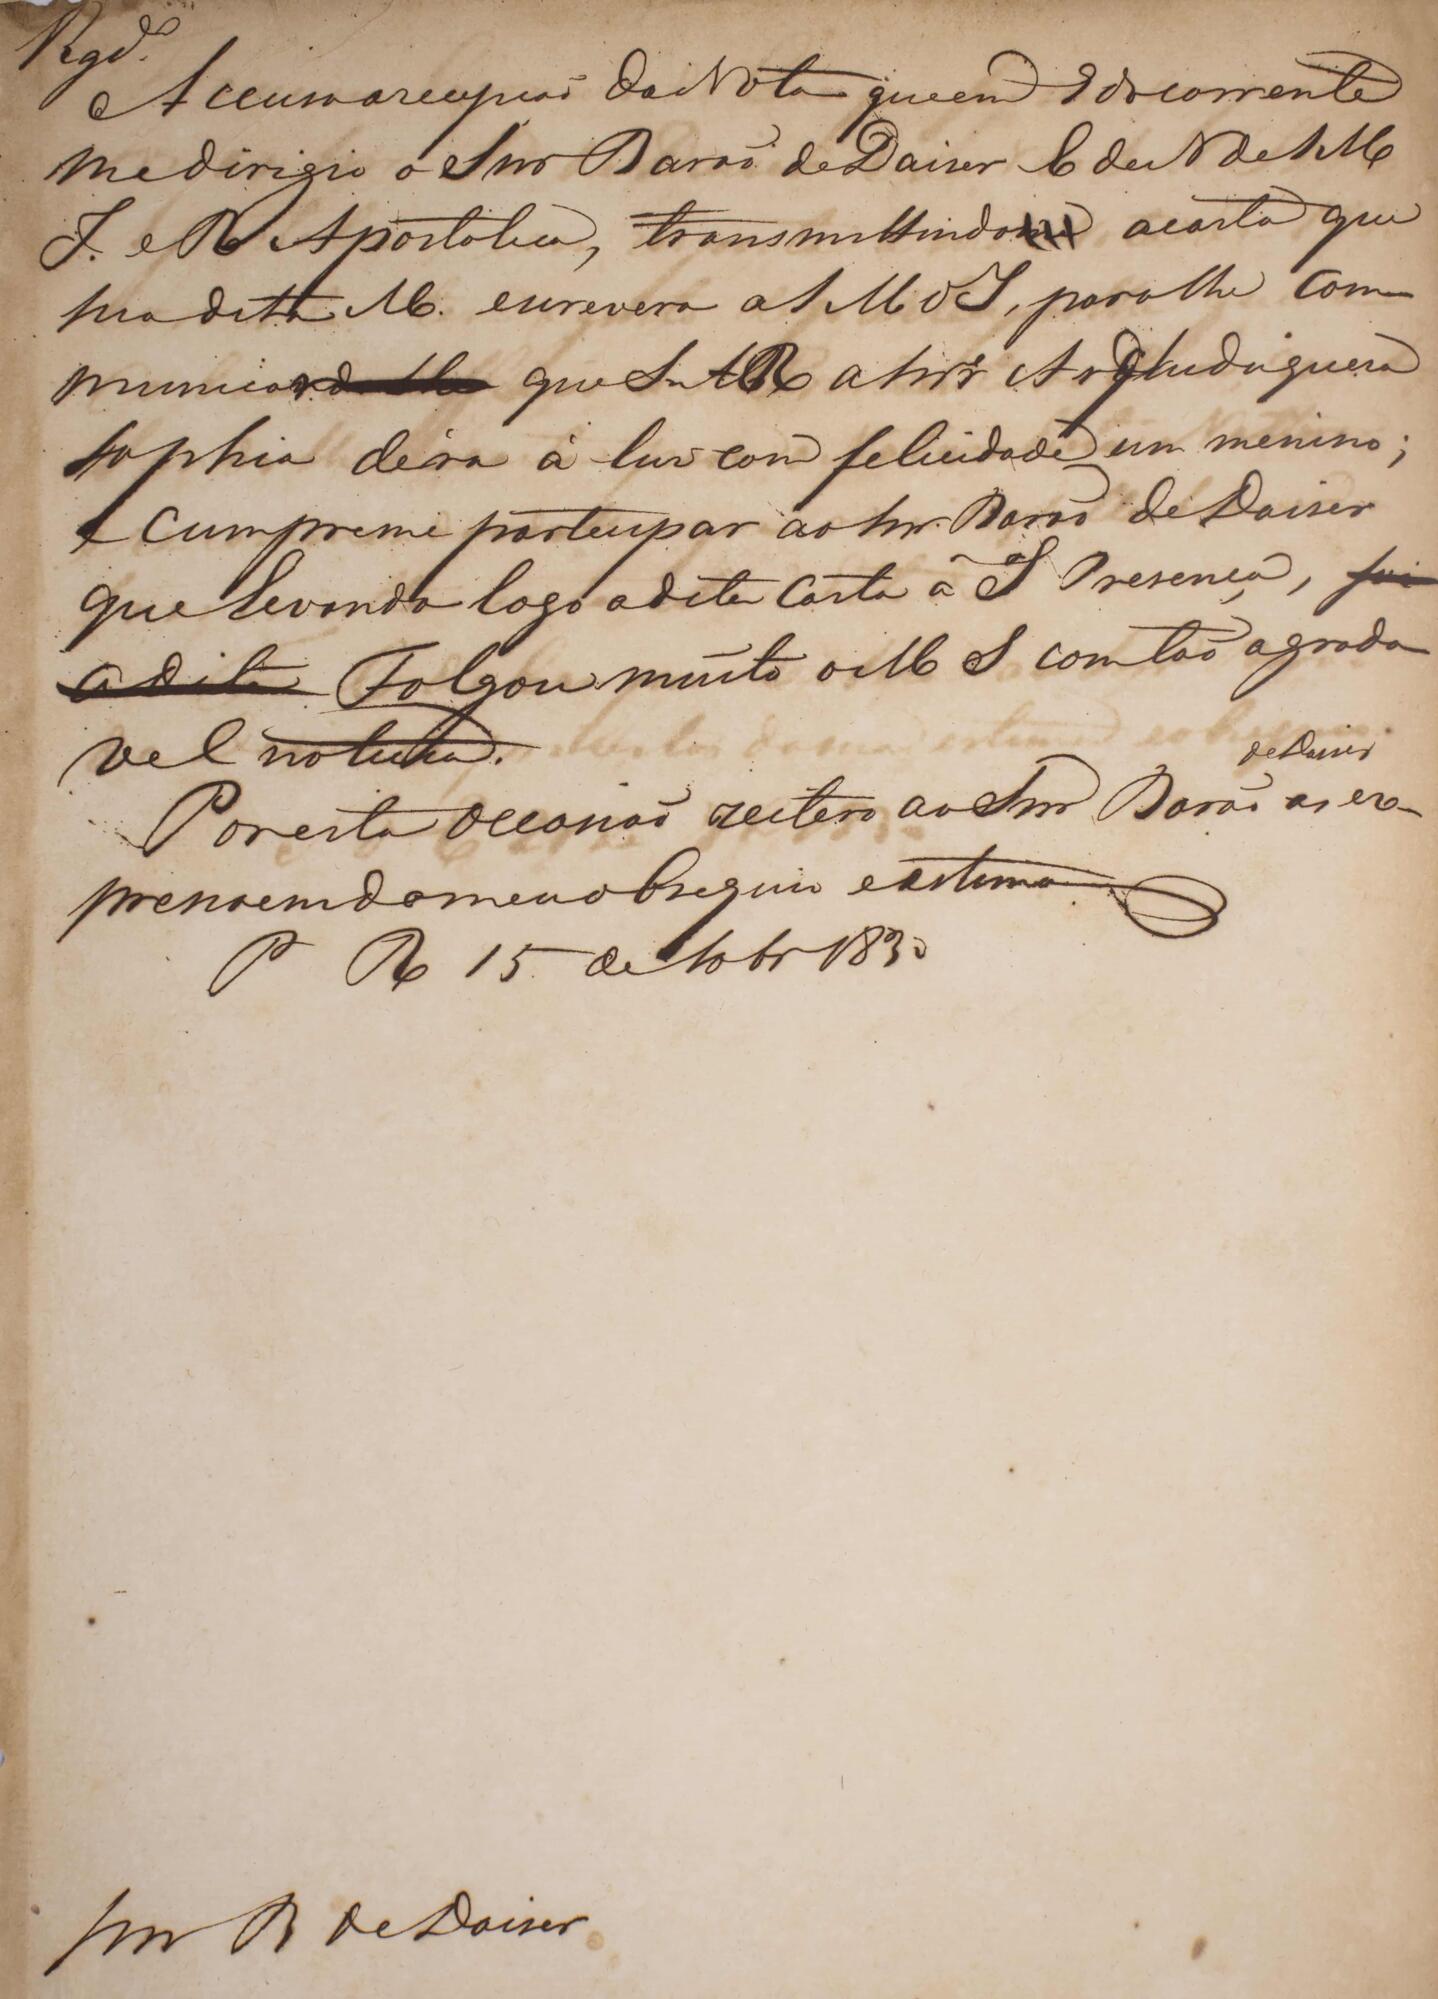 Regd.
Accuso a recepçaõ da Nota que em 9 do corrente
me dirigio o Snr Baraõ de Daiser E de N de S M
I. e R Apostolica, transmittindo a carta que
sua dita M. escrevera a S M O I, para lhe com-
municar que S. A R a Snrª Archuduqueza
Sophia déra á luz com felicidade um menino;
e cumpre me participar ao Snr. Baraõ de Daiser
que levando logo a dita Carta á I Presença, foi
a dita Folgou muito o M S com taõ agrada-
vel noticia.
de Daiser
Por esta occasiaõ reitero ao Snr Baraõ as ex-
pressoens do meu obsequio e estima
P R 15 de Sobr 1830
Snr B de Daiser